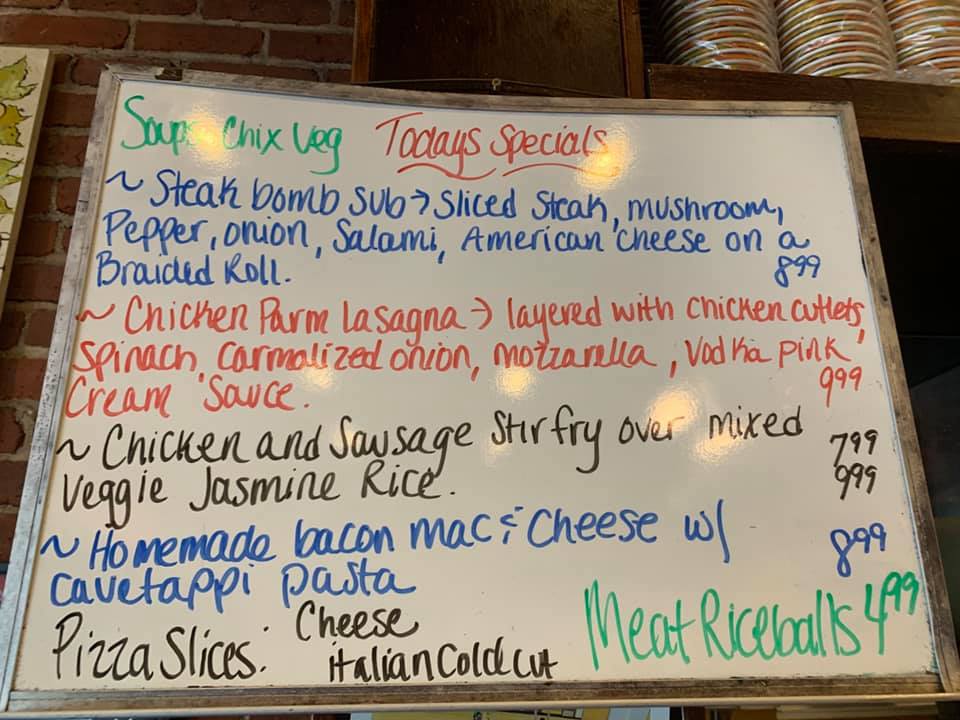 Soups Chix Veg Todays Specials
~ Steak bomb sub → Sliced Steak, mushroom,
Pepper, onion, Salami, American cheese on a
Braided Roll. 8.99
~ Chicken Parm Lasagna → layered with chicken cutlets,
Spinach, carmalized onion, mozzarella, Vodka pink
Cream Sauce. 999
~ Chicken and Sausage Stir fry over mixed 799
Veggie Jasmine Rice. 999
~ Homemade bacon mac & Cheese w/ 899
cavetappi pasta
Pizza Slices: Cheese
italian Cold cut
Meat Riceballs 499